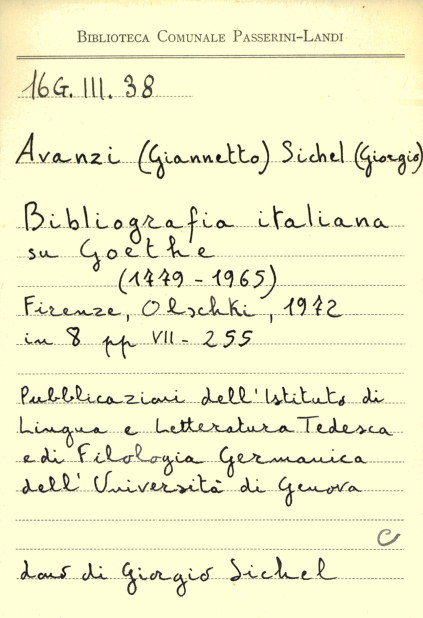 BIBLIOTECA COMUNALE PASSERINI-LANDI
16G. III. 38
Avanzi (Giannetto) Sichel (Giorgio)
Bibliografia italiana
su Goethe
(1779 - 1965)
Firenze, Olschki, 1972
in 8 pp VII - 255
Pubblicazioni dell'Istituto di
Lingua e Letteratura Tedesca
e di Filologia Germanica
dell' Università di Genova
C
dono di Giorgio Sichel